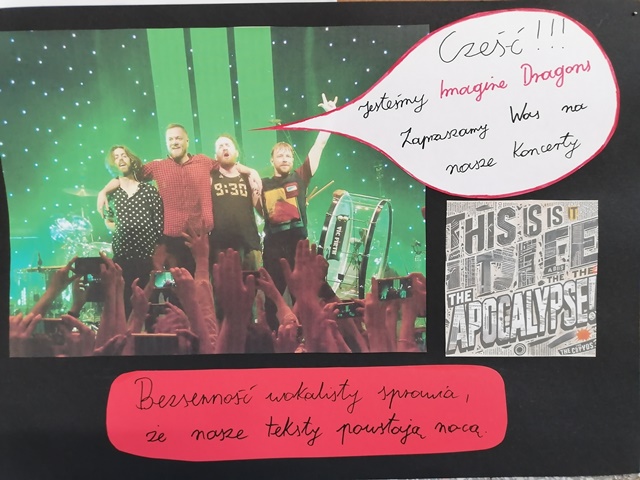 Cześć!!!
Jesteśmy Imagine Dragons
Zapraszamy Was na
nasze koncerty
9:30
THIS IS IS IT
THE THE
THE
APOCALYPSE!
Bezsenność wokalisty sprawia,
że nasze teksty powstają nocą.